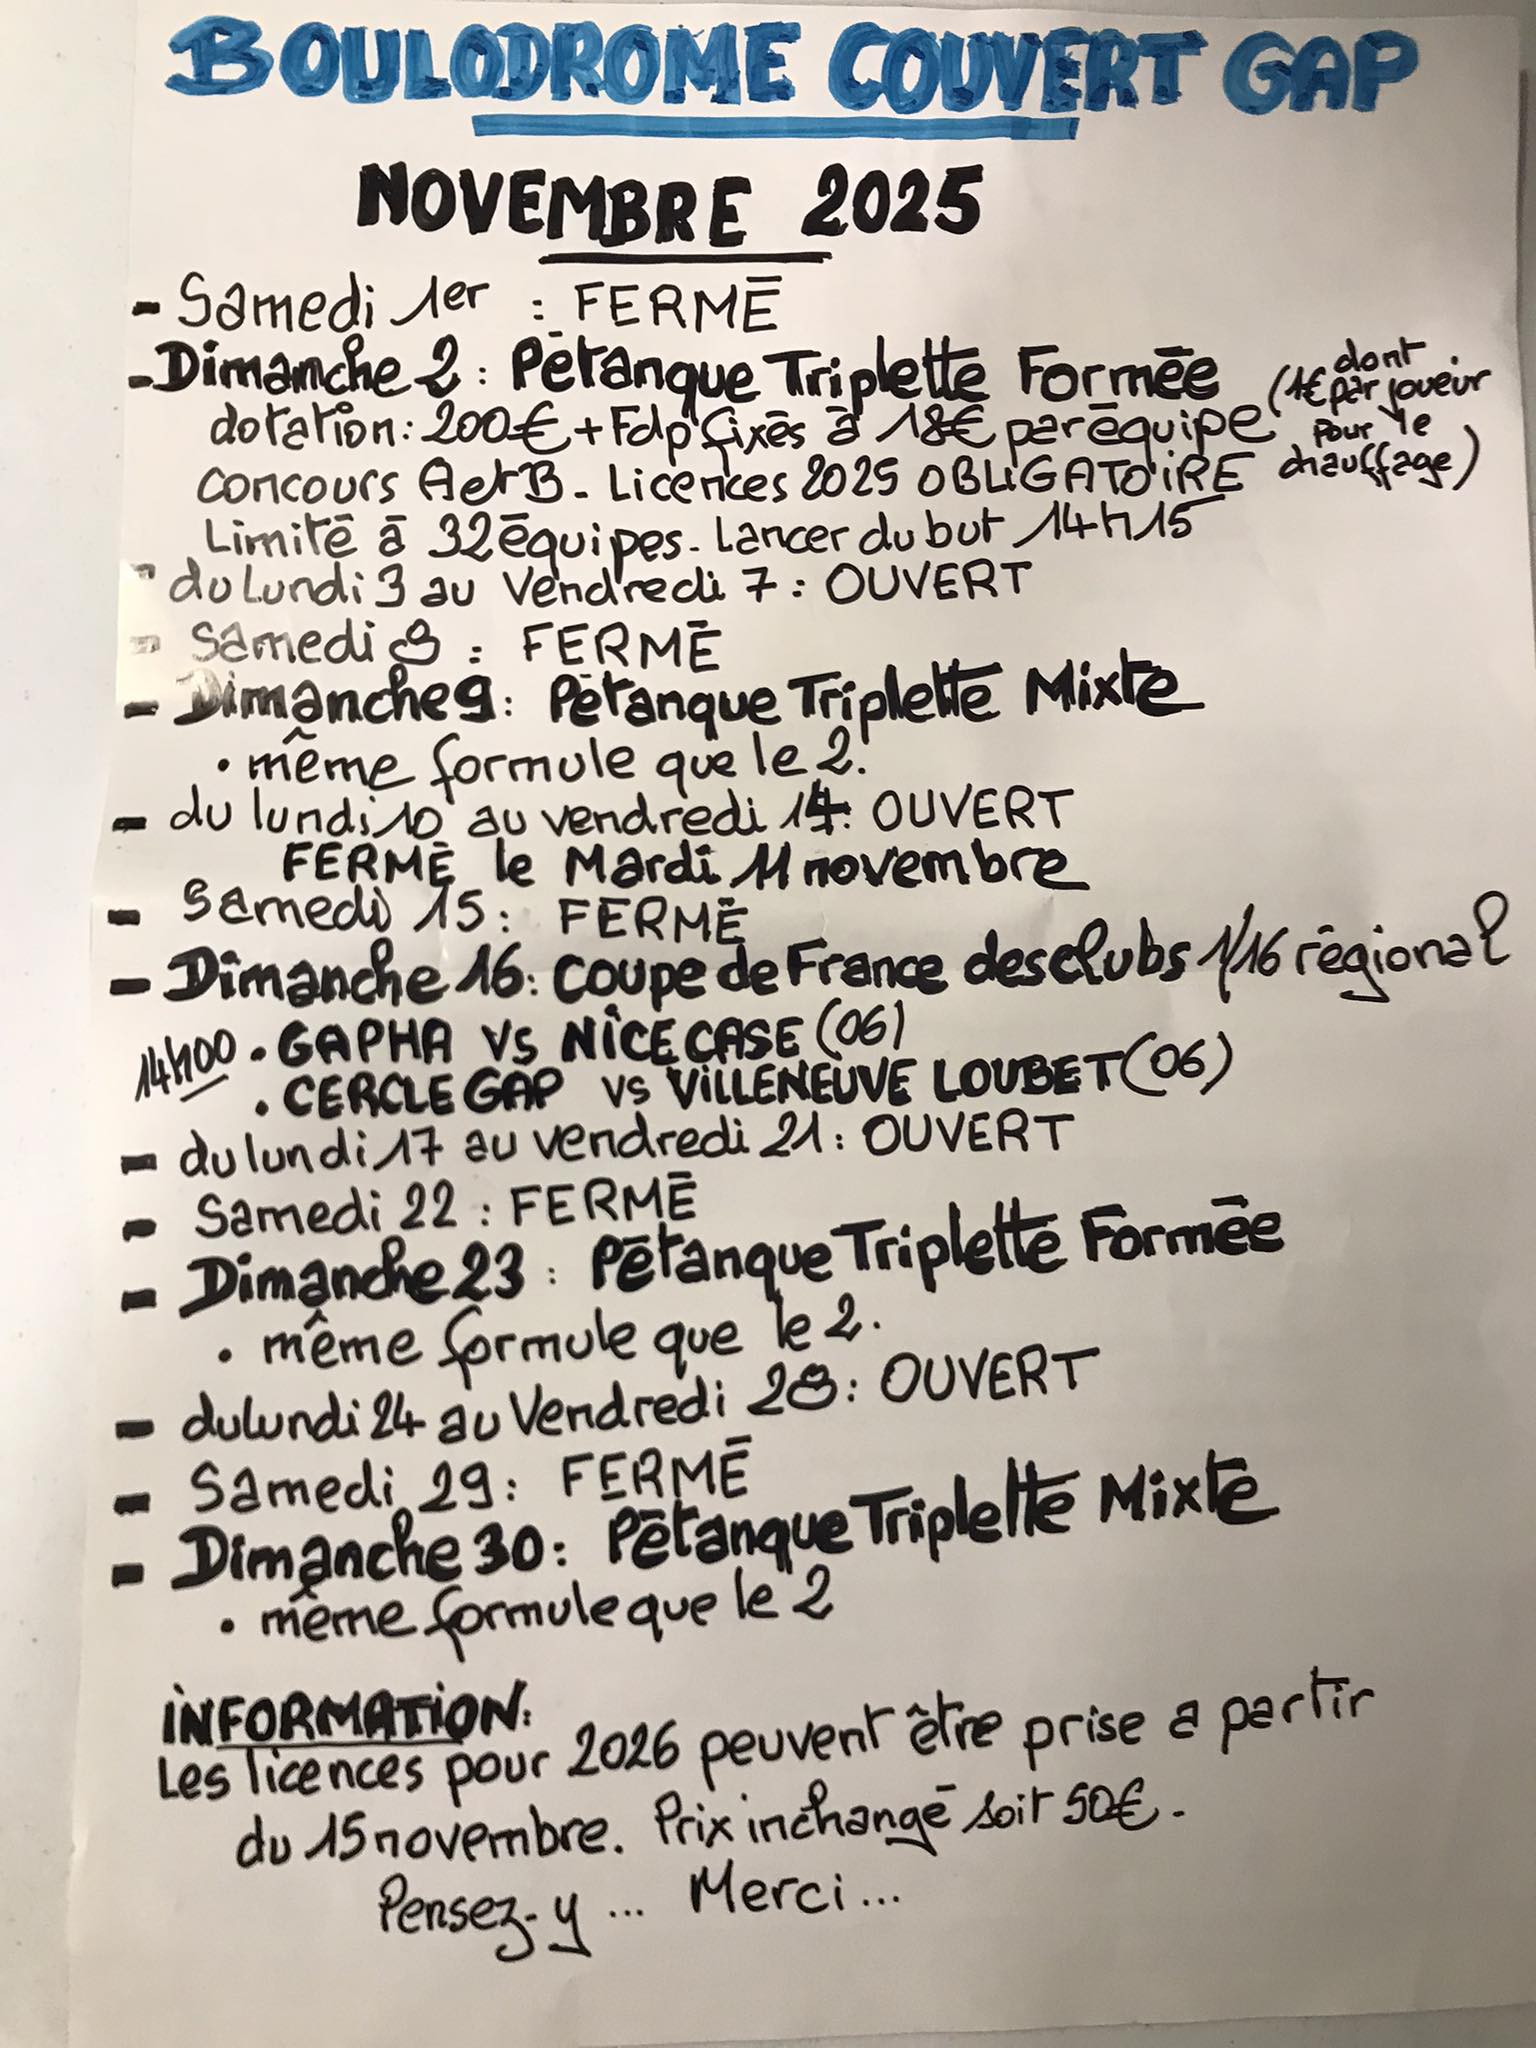 BOULODROME COUVERT GAP
NOVEMBRE 2025
- Samedi 1er : FERMÉ
- Dimanche 2 : Pétanque Triplette Formée
dotation : 200€ + Fdp fixés à 18€ par équipe (dont 1€ par joueur pour le chauffage)
concours A et B - Licences 2025 OBLIGATOIRE
Limité à 32 équipes - Lancer du but 14h15
- du Lundi 3 au Vendredi 7 : OUVERT
- Samedi 8 : FERMÉ
- Dimanche 9 : Pétanque Triplette Mixte
• même formule que le 2.
- du lundi 10 au vendredi 14 : OUVERT
FERMÉ le Mardi 11 novembre
- Samedi 15 : FERMÉ
- Dimanche 16 : Coupe de France des clubs 1/16 régional
14h00 • GAPHA VS NICE CASE (06)
• CERCLE GAP VS VILLENEUVE LOUBET (06)
- du lundi 17 au vendredi 21 : OUVERT
- Samedi 22 : FERMÉ
- Dimanche 23 : Pétanque Triplette Formée
• même formule que le 2.
- du lundi 24 au Vendredi 28 : OUVERT
- Samedi 29 : FERMÉ
- Dimanche 30 : Pétanque Triplette Mixte
• même formule que le 2
INFORMATION :
Les licences pour 2026 peuvent être prise a partir
du 15 novembre. Prix inchangé soit 50€.
Pensez-y ... Merci ...